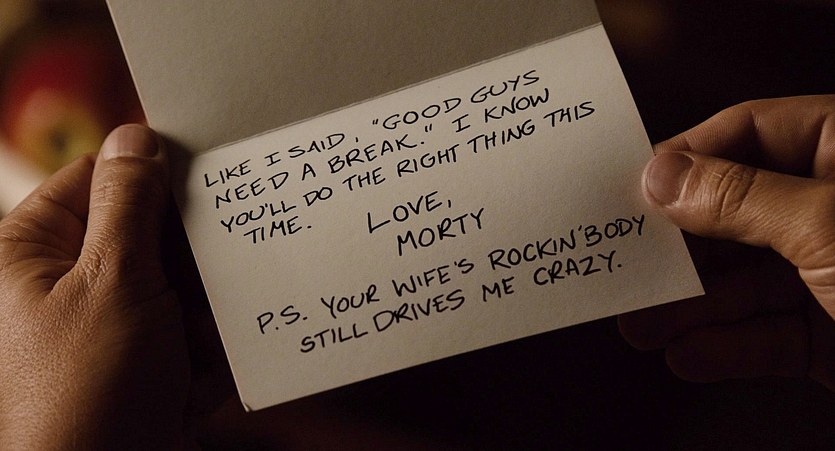 LIKE I SAID, "GOOD GUYS
NEED A BREAK." I KNOW
YOU'LL DO THE RIGHT THING THIS
TIME.
LOVE,
MORTY
P.S. YOUR WIFE'S ROCKIN' BODY
STILL DRIVES ME CRAZY.